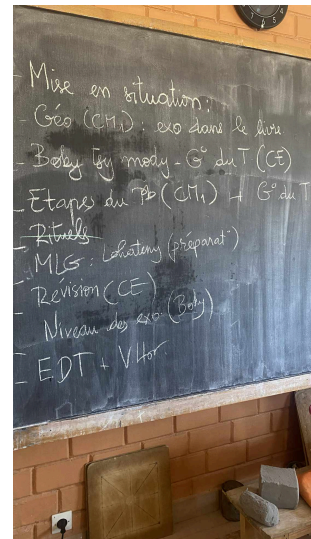 - Mise en situation :
- Géo (CM1) : exo dans le livre
- Boky sy mody - G° du T (CE)
- Etapes du Pb (CM1) + G° du T
- Rituels
- MLG : Lohateny (préparat°)
- Révision (CE)
- Niveau des exo (Boky)
- EDT + V Hor.